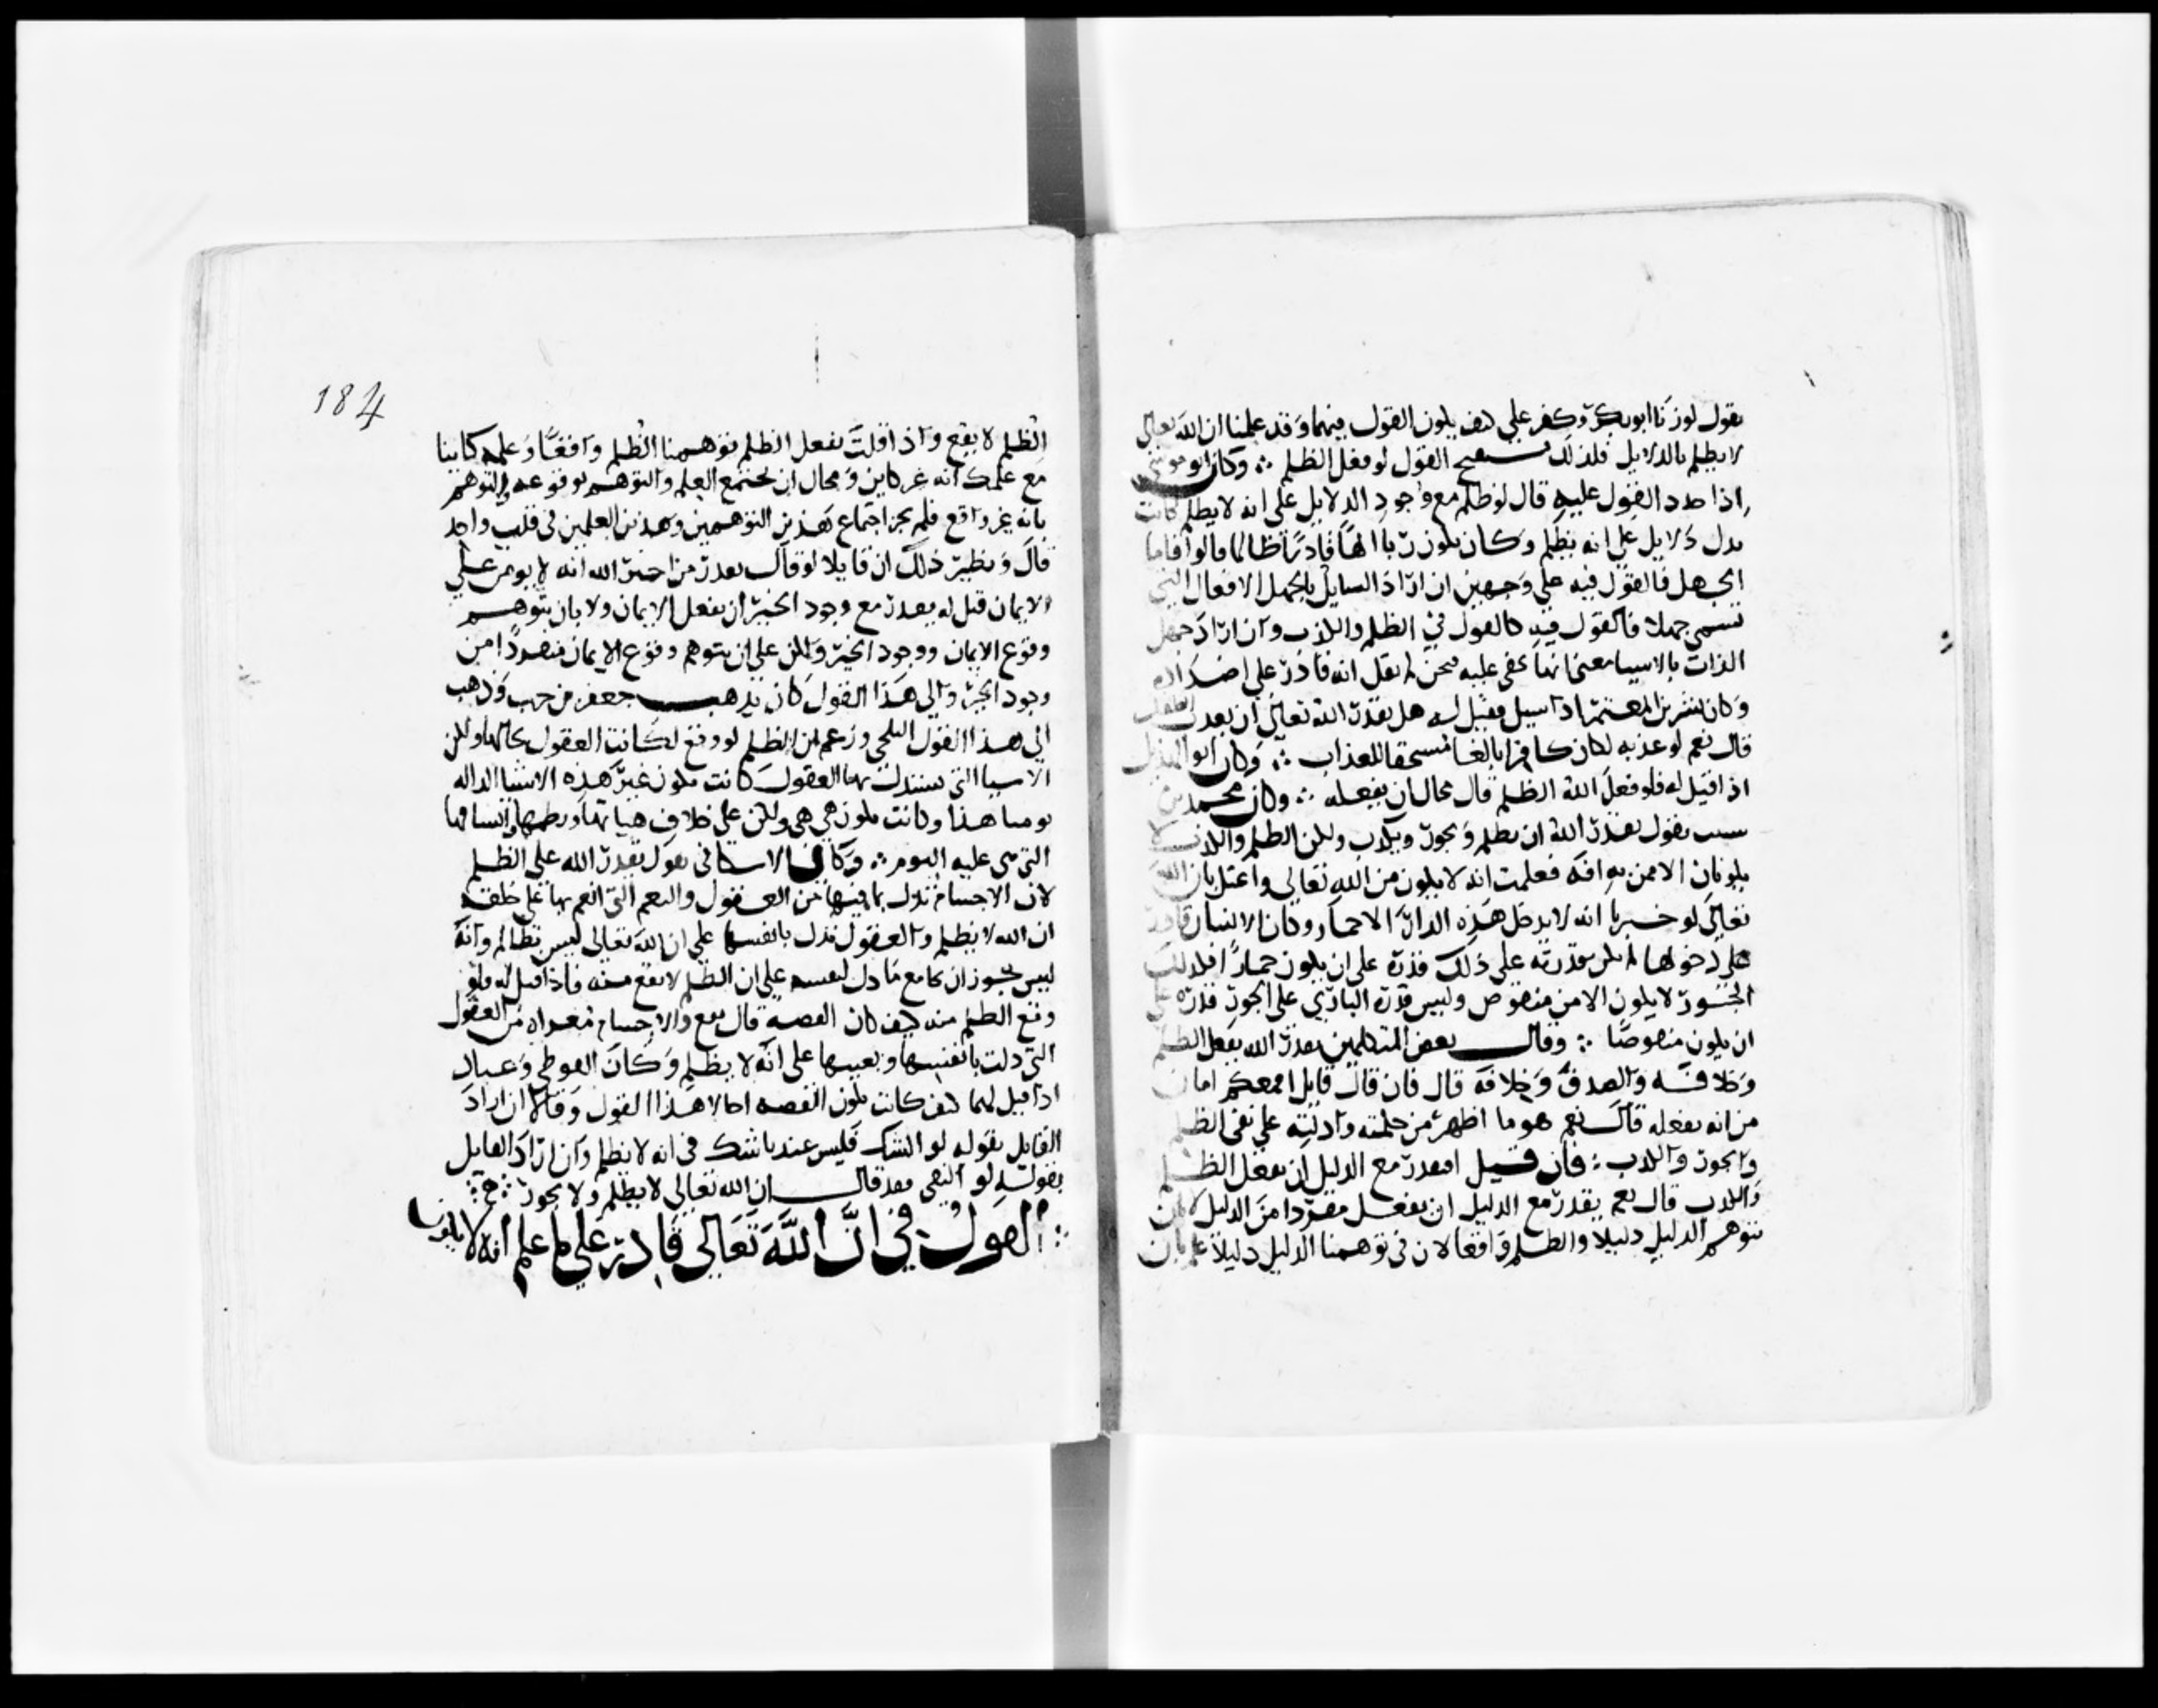 يقول لو زنا ابو بكر وكفر علي كيف يكون القول فيهما وقد علمنا ان الله تعالى
لا يظلم بالدلايل فلذلك يستقبح القول لو فعل الظلم ∴ وكان ابو موسى
اذا جدد القول عليه قال لو ظلم مع وجود الدلايل على انه لا يظلم لكانت
تدل دلايل على انه يظلم وكان يكون ربا الها قادرا ظالما قالوا فاما
الجهل فالقول فيه على وجهين ان اراد السايل بالجهل الافعال التي
تسمى جهلا فالقول فيه كالقول في الظلم والكذب وان اراد جهل
الذات بالاشيا بمعنى انها تخفى عليه فنحن لم نقل انه قادر على اضداده
وكان بشر بن المعتمر اذا سيل فقيل له هل يقدر الله تعالى ان يعذب الطفل
قال نعم لو عذبه لكان كافرا بالغا مستحقا للعذاب ∴ وكان ابو الهذيل
اذا قيل له فلو فعل الله الظلم قال محال ان يفعله ∴ وكان محمد بن
شبيب يقول يقدر الله ان يظلم ويجور ويكذب ولكن الظلم والكذب لا
يكونان الا ممن به افة فعلمت انه لا يكون من الله تعالى واعتل بان الله
تعالى لو خبرنا انه لا يدخل هذه الدار الا حمار وكان الانسان قادرا
على دخولها لم تكن قدرته على ذلك قدرة على ان يكون حمارا فكذلك
الجور لا يكون الا من منقوص وليس قدرة الباري على الجور قدرة على
ان يكون منقوصا ∴ وقال بعض المتكلمين يقدر الله بفعل الظلم
وخلافه والصدق وخلافه قال فان قال قايل امعكم امان
من انه يفعله قال نعم هو ما اظهر من حكمته وادلته على نفي الظلم
والجور والكذب : فان قيل افيقدر مع الدليل ان يفعل الظلم
والكذب قال نعم يقدر مع الدليل ان يفعل مفردا من الدليل لا بان
نتوهم الدليل دليلا والظلم واقعا لان في توهمنا الدليل دليلا علما بان
184
الظلم لا يقع واذا قلت يفعل الظلم توهمنا الظلم واقعا وعلمه كاينا
مع علمك انه غير كاين ومحال ان يجتمع العلم والتوهم لوقوعه والتوهم
بانه غير واقع فلم يجز اجتماع هذين التوهمين وهذين العلمين في قلب واحد
قال ونظير ذلك ان قايلا لو قال يقدر من اخبر الله انه لا يومن على
الايمان قيل له يقدر مع وجود الخبر ان يفعل الايمان ولا بان نتوهم
وقوع الايمان ووجود الخبر ولكن على ان نتوهم وقوع الايمان منفردا من
وجود الخبر والى هذا القول كان يذهب جعفر بن حرب وذهب
الى هذا القول البلخي وزعم ان الظلم لو وقع لكانت العقول بحالها ولكن
الاشيا التي يستدل بها العقول كانت تكون غير هذه الاشيا الدالة
يومنا هذا وكانت تكون هي هي ولكن على خلاف هياتها ونظمها واتساقها
التي هي عليه اليوم ∴ وكان الاسكافي يقول يقدر الله على الظلم
لان الاجسام تدل بما فيها من العقول والنعم التي انعم بها على خلقه
ان الله لا يظلم والعقول تدل بانفسها على ان الله تعالى ليس بظالم وانه
ليس يجوز ان يجامع ما دل لنفسه على ان الظلم لا يقع منه فاذا قيل له فلو
وقع الظلم منه كيف كان القصة قال يقع والاجسام معراه من العقول
التي دلت بانفسها وبعينها على انه لا يظلم وكان الفوطي وعباد
اذا قيل لهما كيف كانت تكون القصة احالا هذا القول وقالا ان اراد
القايل بقوله لو الشك فليس عندنا شك في انه لا يظلم وان اراد القايل
بقوله لو النفي فقد قال ان الله تعالى لا يظلم ولا يجور ∴
∴ القول في ان الله تعالى قادر على ما علم انه لا يكون